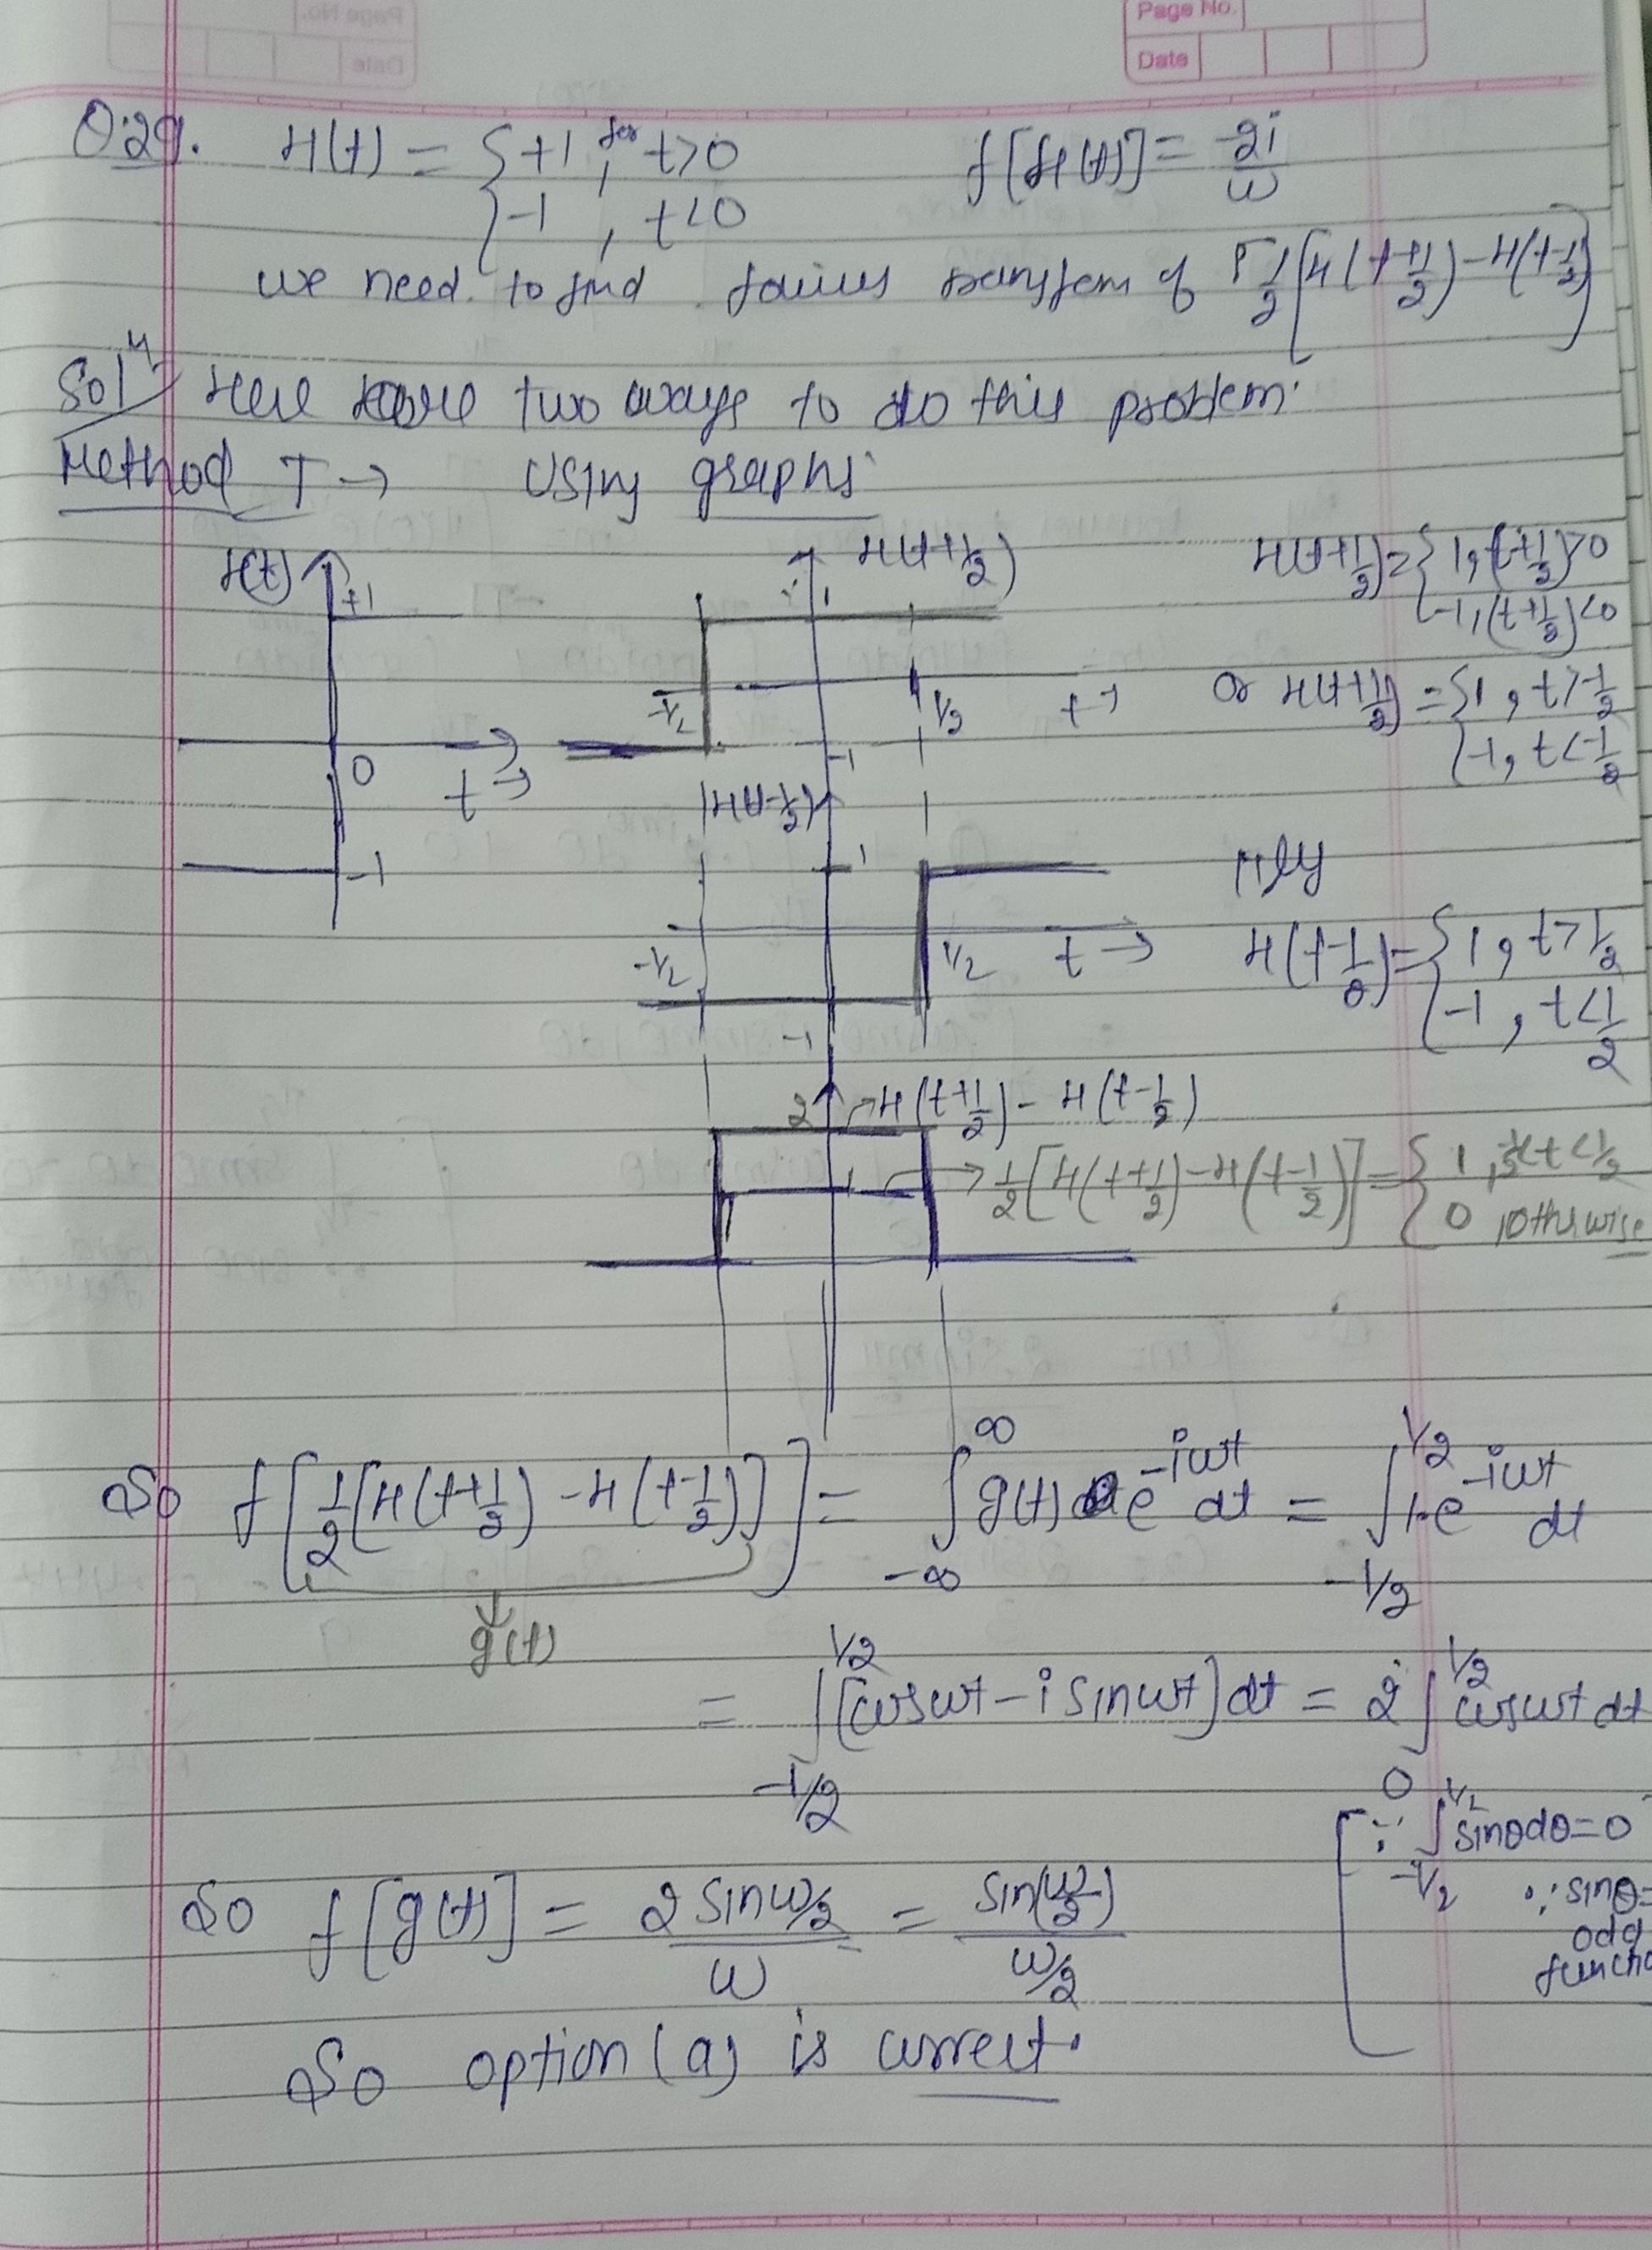 Page No.
Date
Q.29. H(t) = { +1, for t>0 f[H(t)] = -2i/ω
-1, t<0
we need to find fourier transform of 1/2[H(t+1/2)-H(t-1/2)]
Solⁿ Here are two ways to do this problem.
Method I → Using graphs
H(t) +1 0 t→ -1
H(t+1/2) 1 -1/2 1/2 t→ -1
H(t+1/2) = { 1, (t+1/2)>0
-1, (t+1/2)<0
or H(t+1/2) = { 1, t>-1/2
-1, t<-1/2
H(t-1/2) 1 -1/2 1/2 t→ -1
llly
H(t-1/2) = { 1, t>1/2
-1, t<1/2
2 → H(t+1/2) - H(t-1/2)
1 → 1/2[H(t+1/2)-H(t-1/2)] = { 1, -1/2<t<1/2
0, otherwise
So f[1/2[H(t+1/2)-H(t-1/2)]] = ∫_{-∞}^{∞} g(t) e^{-iωt} dt = ∫_{-1/2}^{1/2} 1·e^{-iωt} dt
g(t)
= ∫_{-1/2}^{1/2} [cosωt - i sinωt] dt = 2 ∫_{0}^{1/2} cosωt dt
[∵ ∫_{-1/2}^{1/2} sinθdθ=0
∵ sinθ=
odd
So f[g(t)] = 2 sin ω/2 / ω = sin(ω/2) / ω/2
So option (a) is correct.